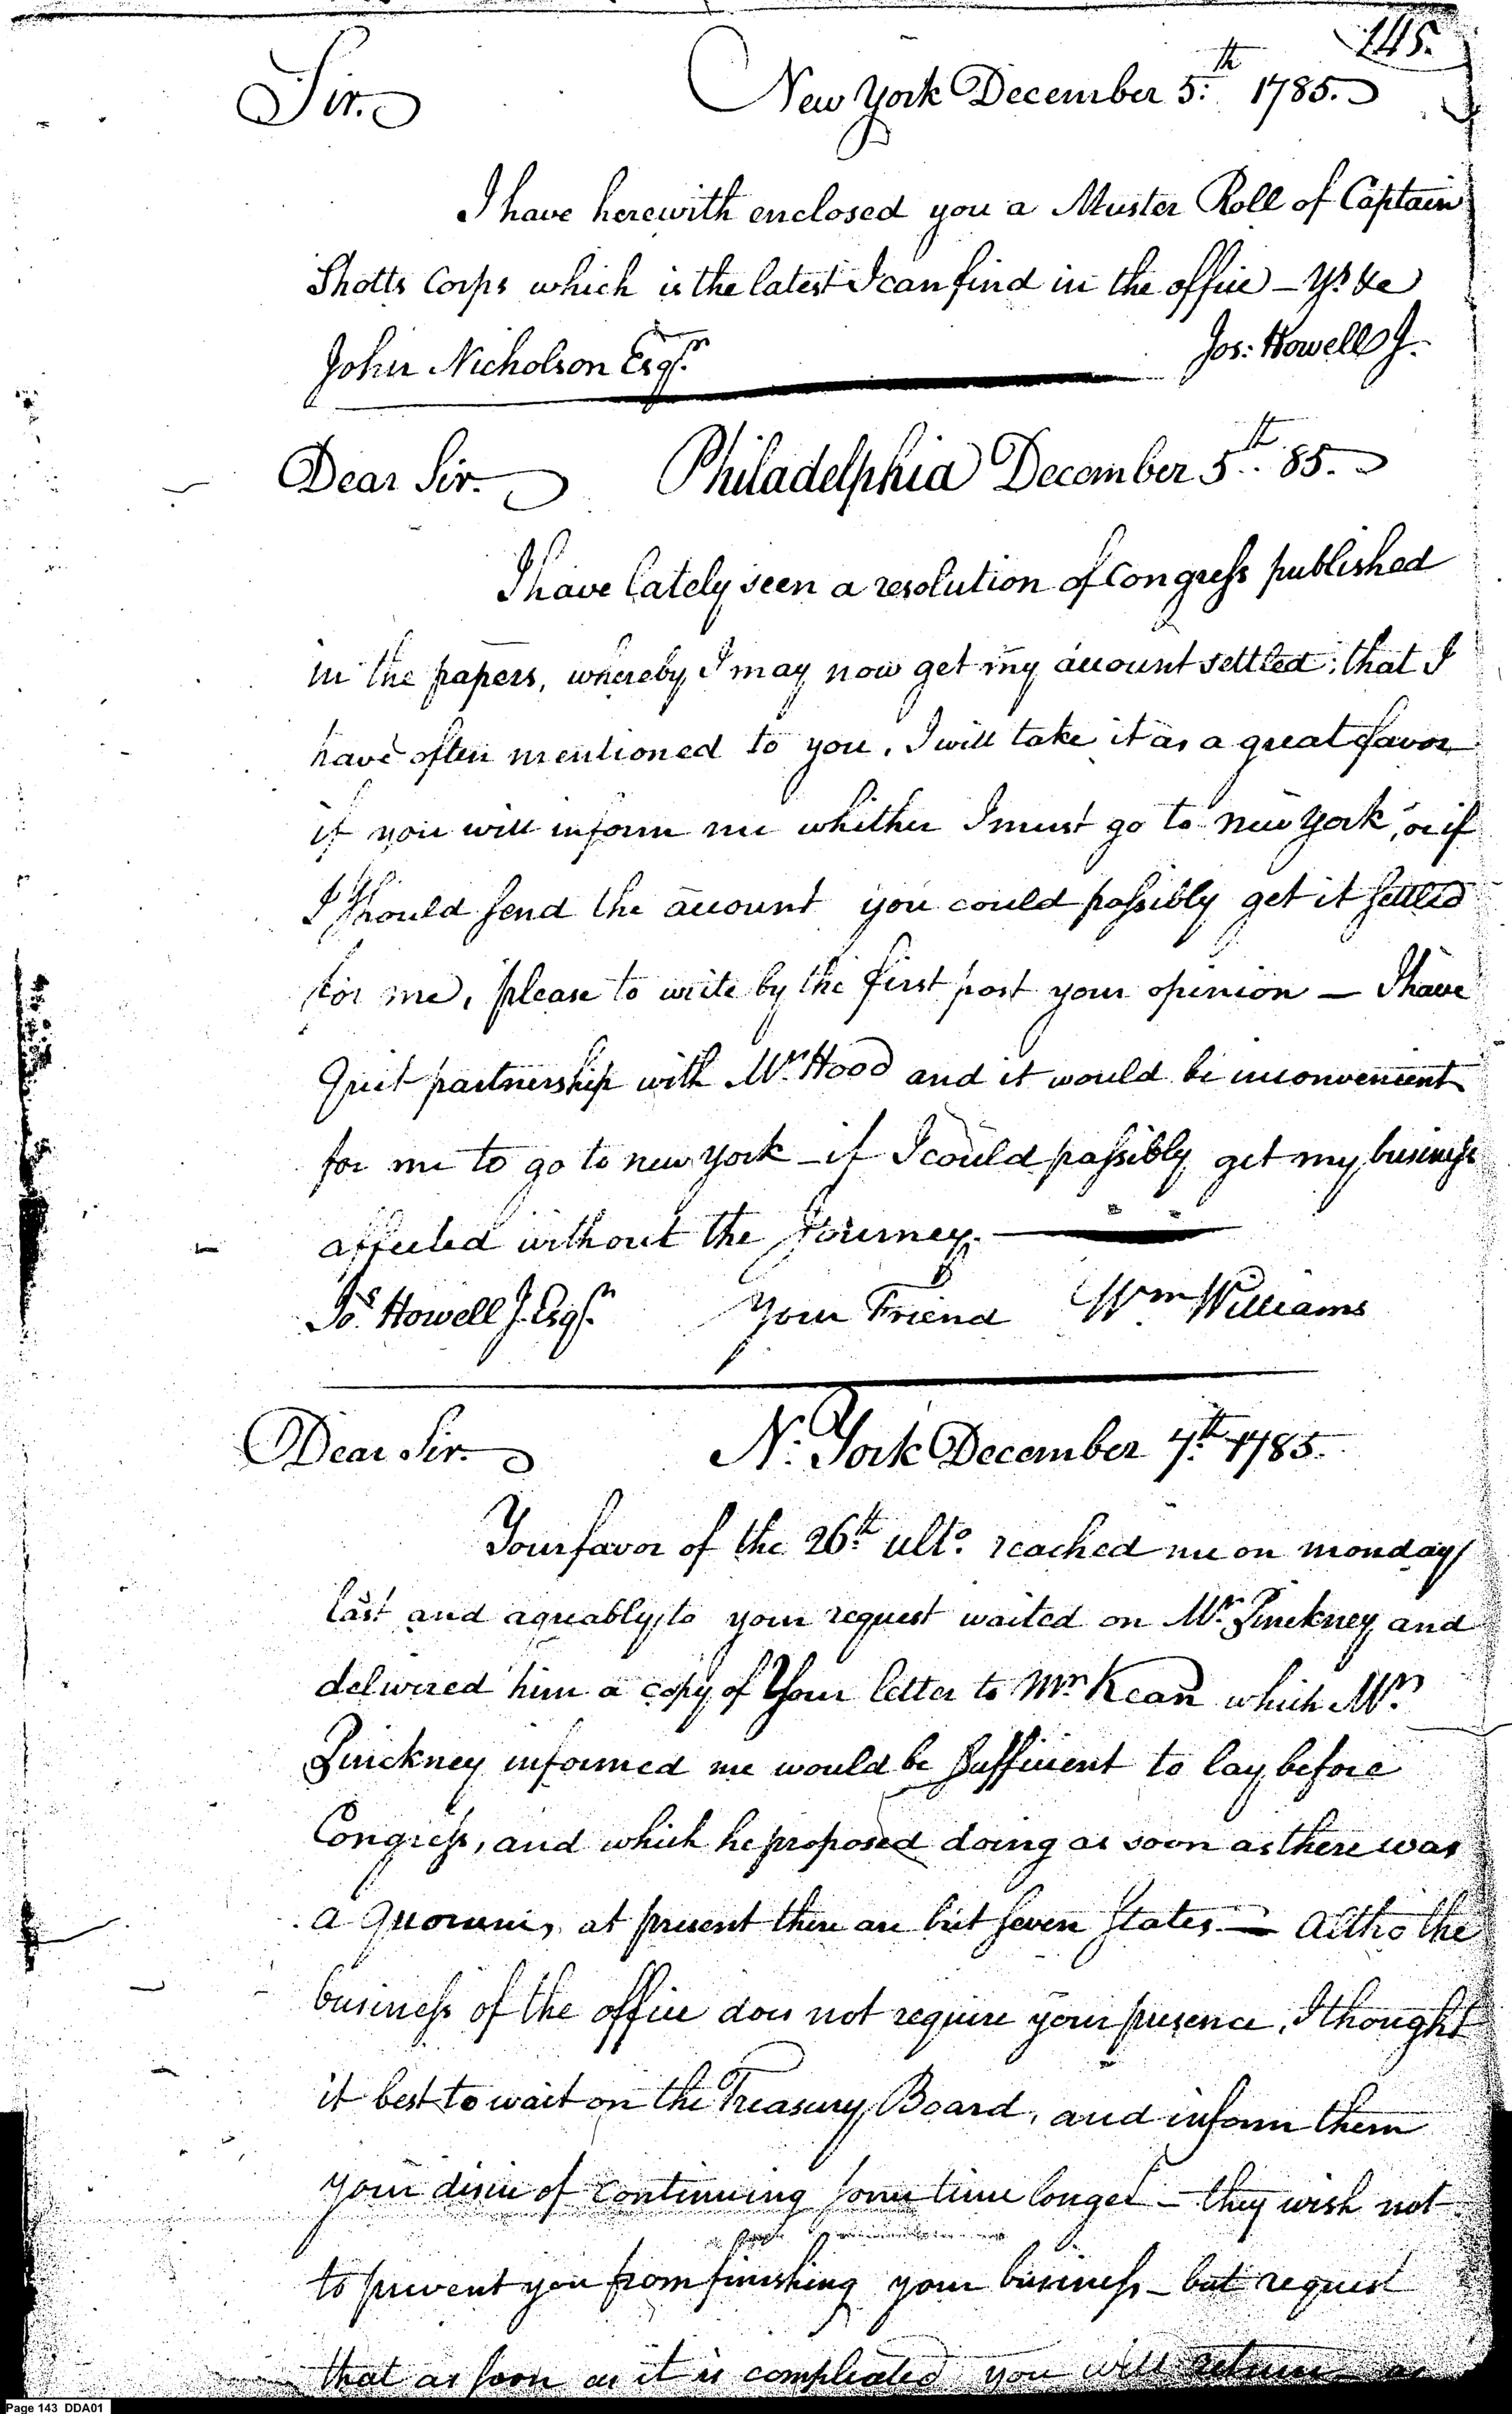 145.
Sir. New York December 5.th 1785.
I have herewith enclosed you a Muster Roll of Captain
Shotts Corps which is the latest I can find in the office – Yrs &c
John Nicholson Esqr. Jos: Howell J.
Dear Sir. Philadelphia December 5th. 85.
I have lately seen a resolution of Congress published
in the papers, whereby I may now get my account settled; that I
have often mentioned to you, I will take it as a great favor
if you will inform me whither I must go to new York, or if
I Should send the account you could possibly get it settled
for me, please to write by the first post your opinion — I have
Quit partnership with Mr. Hood and it would be inconvenient
for me to go to new york – if I could possibly get my business
affected without the Journey.
Jos. Howell J. Esqr. Your Friend Wm Williams
Dear Sir. N. York December 7th. 1785.
Your favor of the 26th. ulto. reached me on monday
last and agreably to your request waited on Mr. Pinckney and
delivered him a copy of Your letter to Mr. Kean which Mr.
Pinckney informed me would be sufficient to lay before
Congress, and which he proposed doing as soon as there was
a Quorum, at present there are but seven States — Altho the
business of the office does not require your presence, I thought
it best to wait on the Treasury Board, and inform them
your desire of continuing some time longer – they wish not
to prevent you from finishing your business – but request
that as soon as it is compleated you will return as
Page 143 DDA01